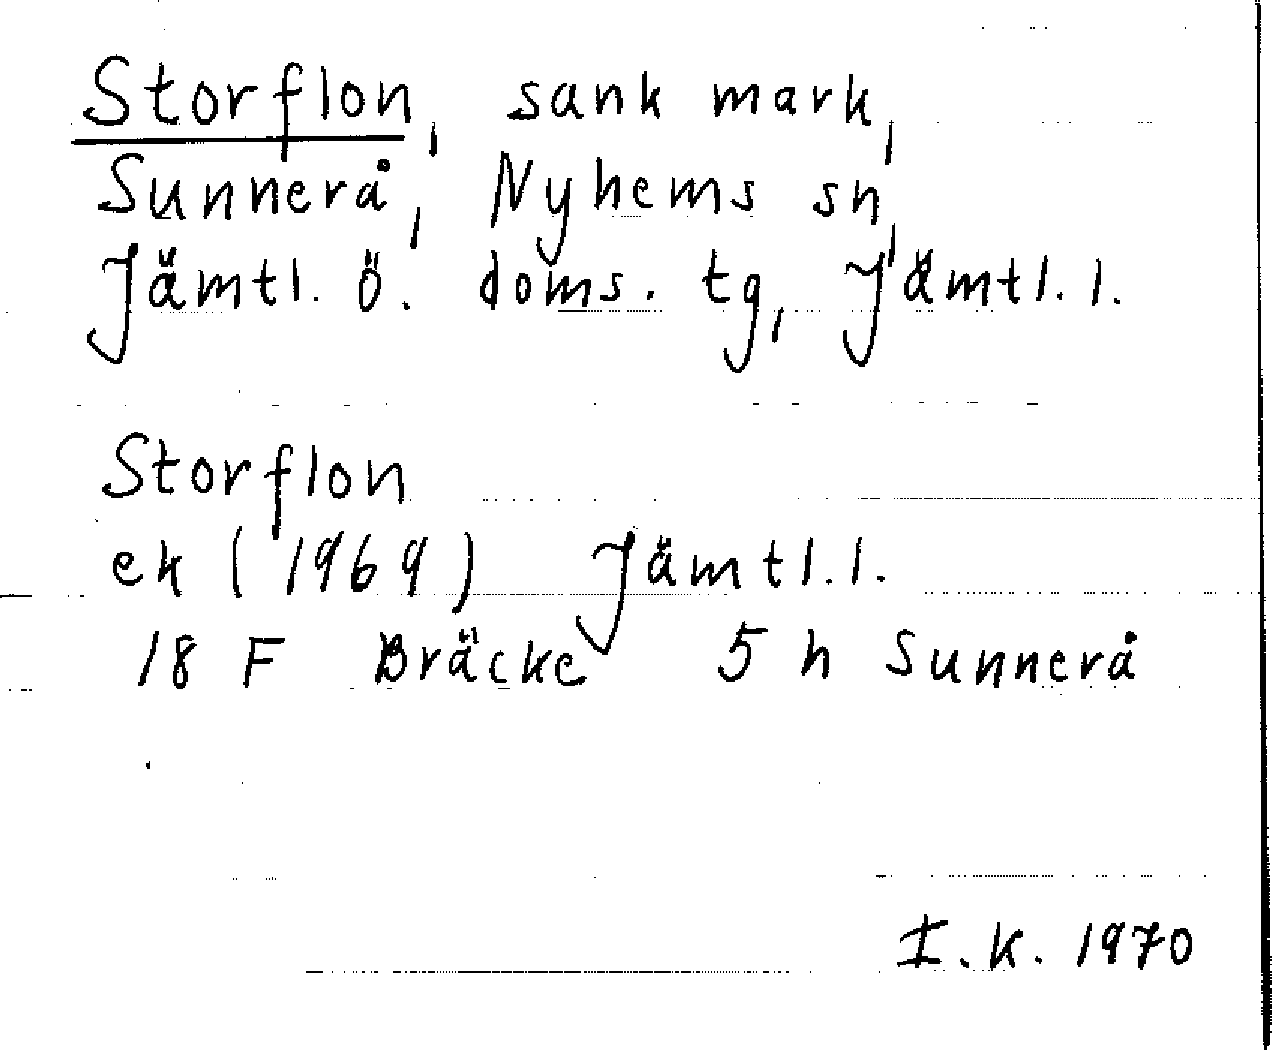 Storflon, sank mark,
Sunnerå, Nyhems sn,
Jämtl. ö. doms. tg, Jämtl. l.
Storflon
ek (1969) Jämtl. l.
18 F Bräcke 5 h Sunnerå
I.K. 1970